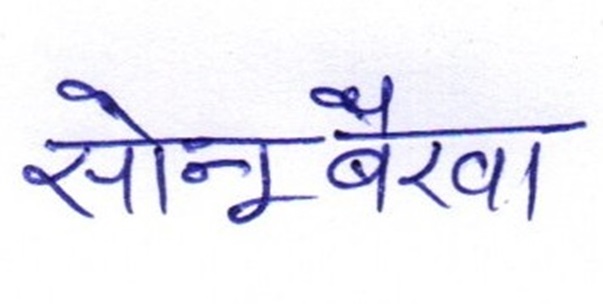 सोनू बैरवा